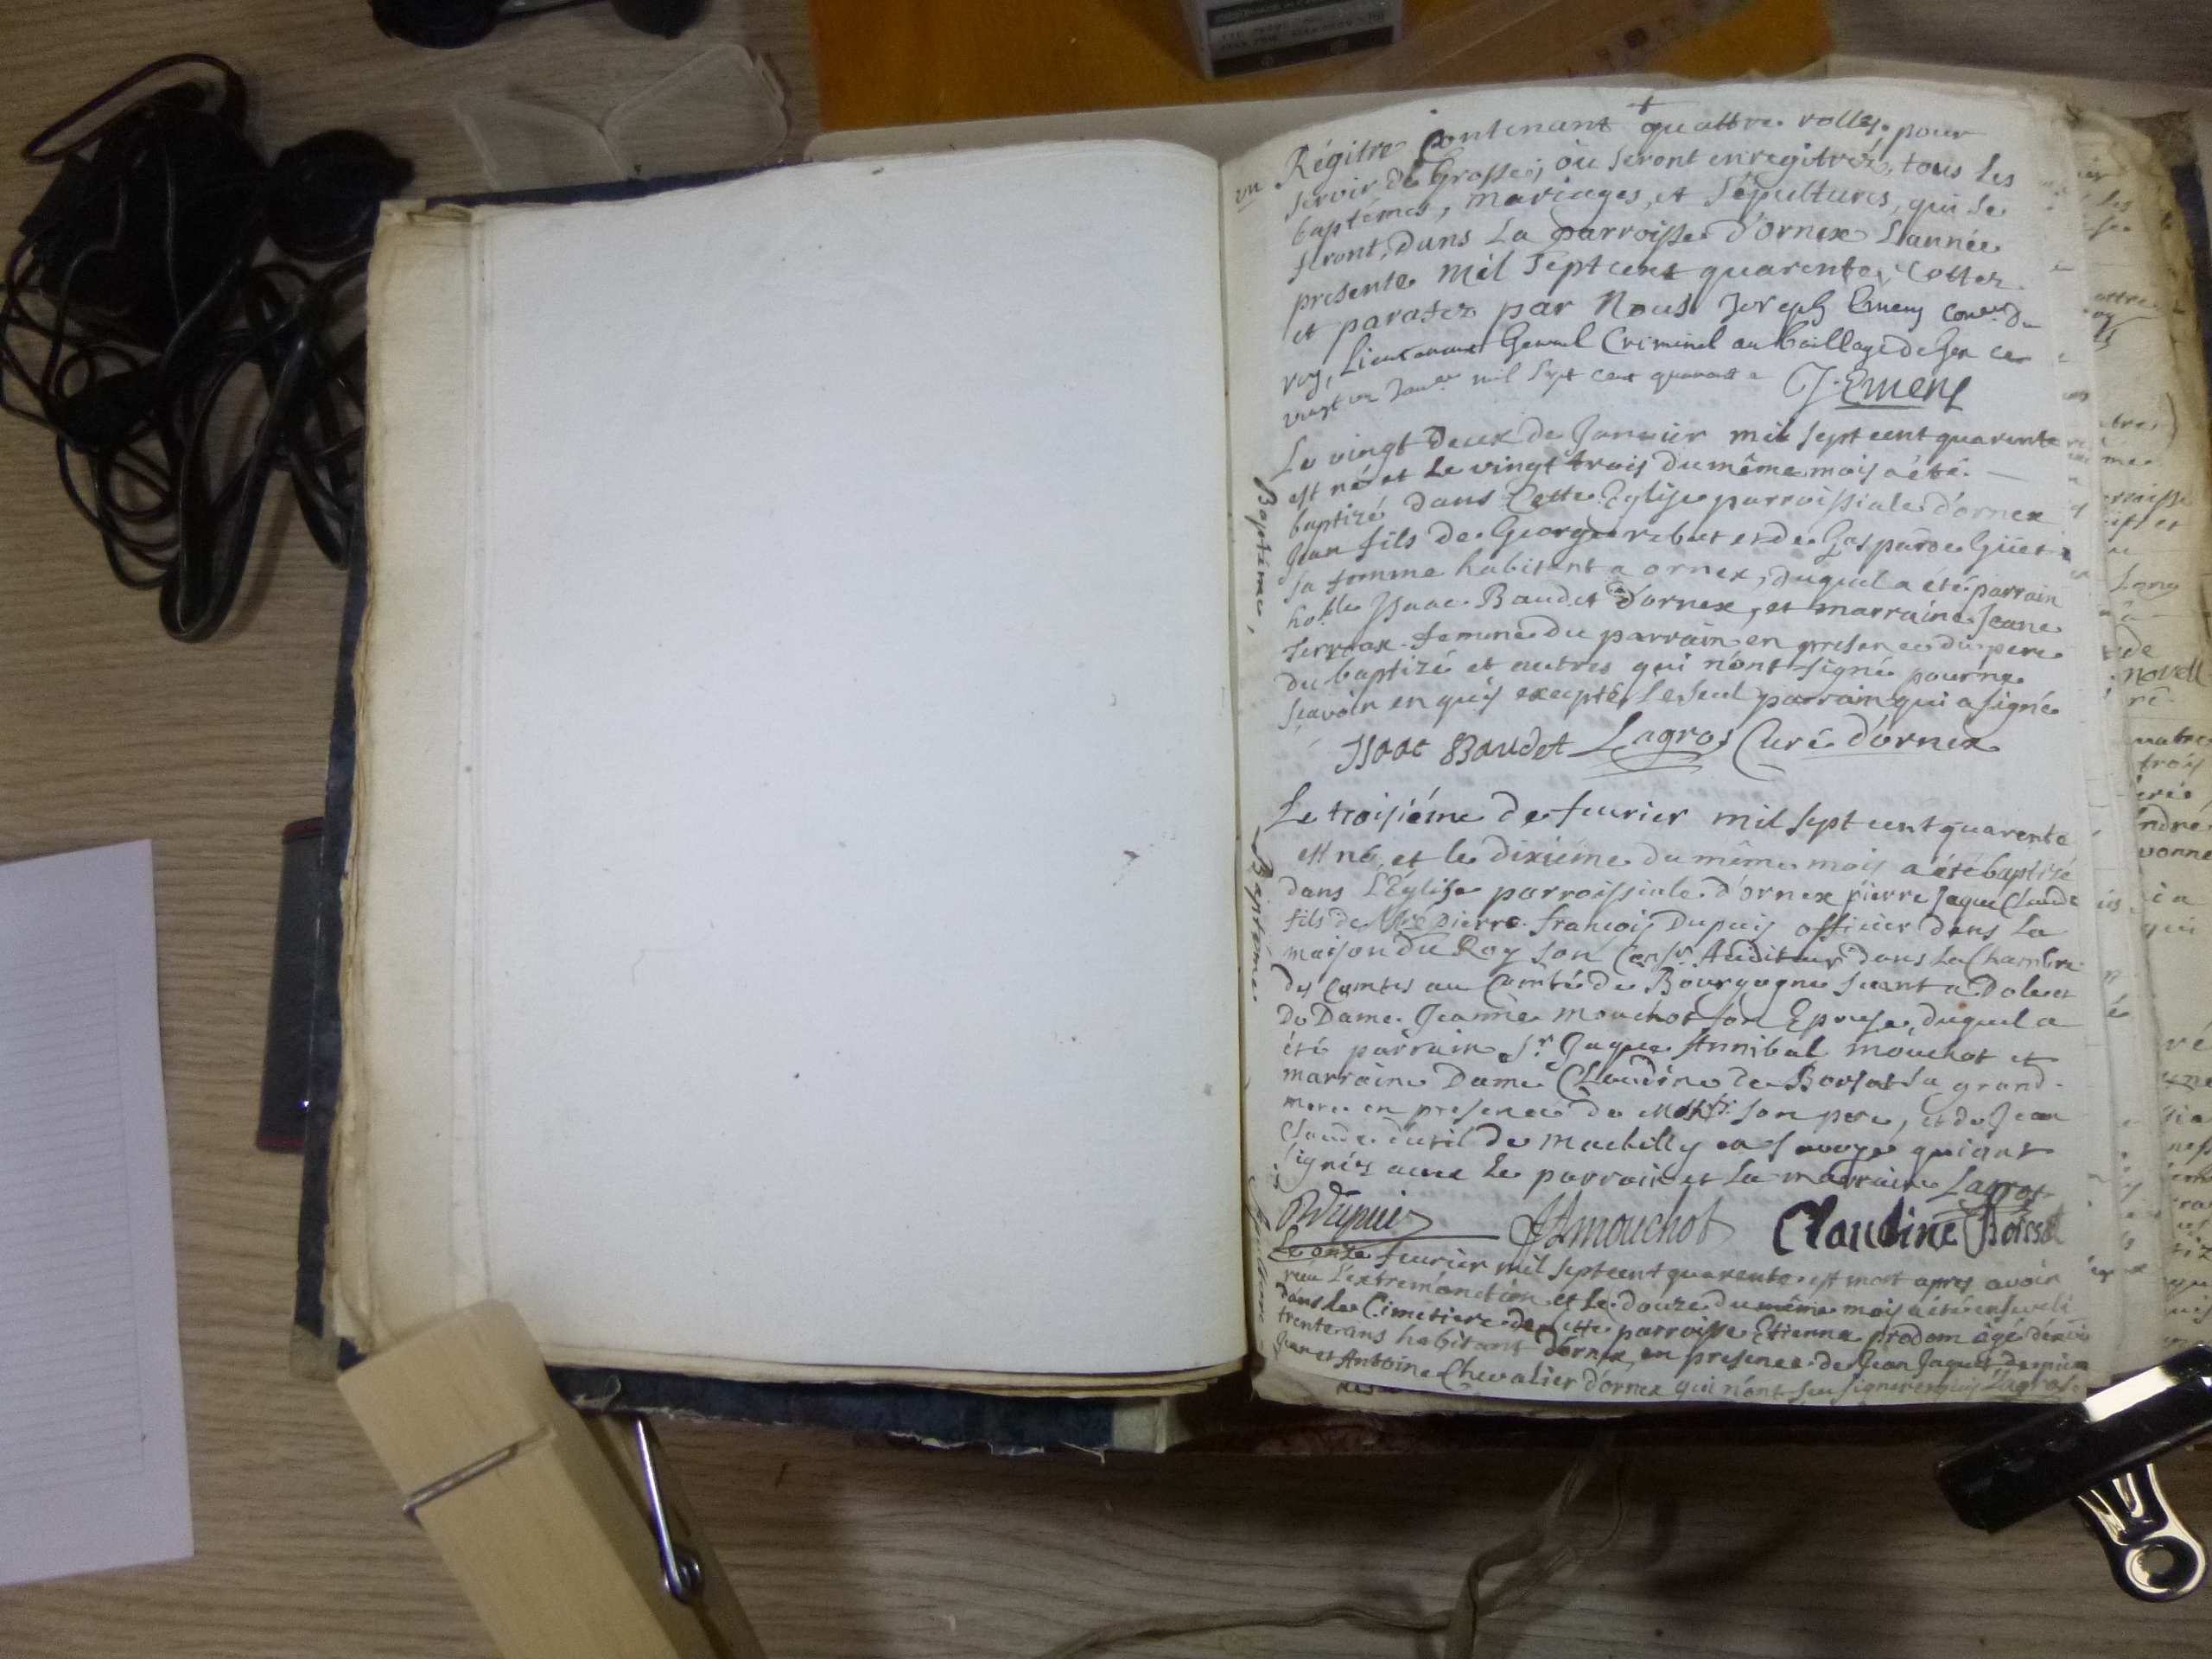 +
un
Régitre Contenant quattre rolles, pour
servir de Grosse, où seront enregitréz, tous les
baptémes, mariages, et Sépultures, qui se
feront, dans La parroisse d'ornex L'année
presente mil sept cent quarente, Cottez
et parafez par Nous Joseph Emery Conser du
roy, Lieutenant General Criminel au bailliage de Gex ce
vingt un Janer mil sept cent quarante J. Emery
Baptéme,
Le vingt deux de Janvier mil sept cent quarente
est né et Le vingt trois du même mois a été
baptizé dans Cette Eglise parroissiale d'ornex
Jean fils de George et de Gasparde
sa femme habitent a ornex, duquel a été parrain
hoble Isaac Baudet d'ornex, et marraine Jeane
femme du parrain en presence du pere
du baptizé et autres qui n'ont signé pour ne
scavoir enquis excepté le seul parrain qui a signé
Isaac Baudet Lagros Curé d'ornex
Baptéme
Le troisiéme de feurier mil sept cent quarente
est né, et le dixiéme du même mois a été baptizé
dans L'Eglise parroissiale d'ornex pierre Jaque Claude
fils de Mre Pierre françois Dupuis officier dans La
maison du Roy son Conser Auditeur dans La Chambre
des Comtes au Comté de Bourgogne seant a Dole et
De Dame Jeanne mouchot son Epouse, duquel a
été parrain Sr Jaque Annibal mouchot et
marraine Dame Claudine de Boissat sa grand
mere en presence de son pere, et de Jean
Claude de machilly en Savoye qui ont
signéz avec Le parrain et La marraine Lagros
Dupuis JAmouchot Claudine Boissat
Sepulture
Le onze feurier mil sept cent quarente est mort apres avoir
recu L'extremonction et Le douze du même mois a été enseveli
dans Le Cimetiere de Cette parroisse Etienne prodom âgé d'environ
trente ans habitant d'ornex, en presence de Jean Jaque
Jean et Antoine Chevalier d'ornex qui n'ont sçu signer enquis Lagros